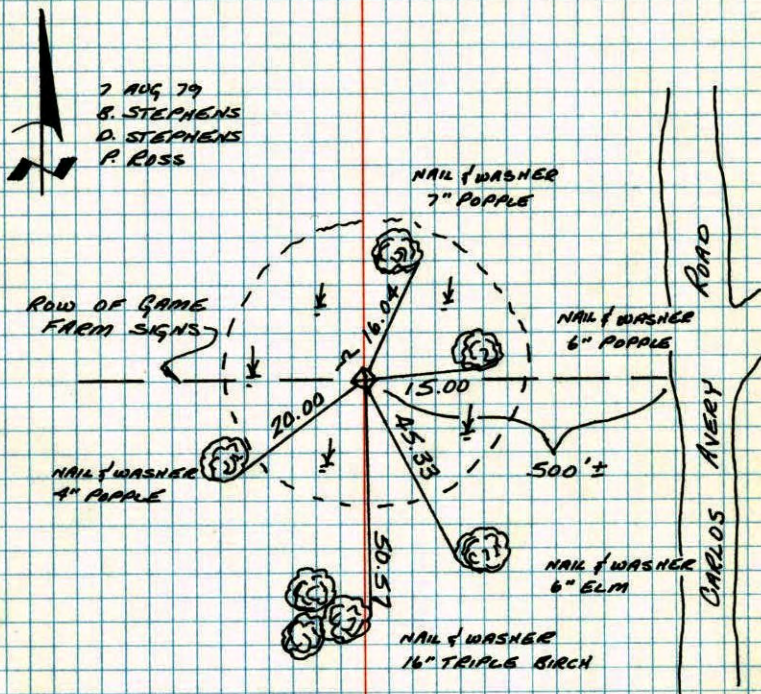 7 AUG 79
B. STEPHENS
D. STEPHENS
P. ROSS
NAIL & WASHER
7" POPPLE
ROW OF GAME
FARM SIGNS
16.04
NAIL & WASHER
6" POPPLE
15.00
20.00
45.33
500'±
NAIL & WASHER
4" POPPLE
50.57
NAIL & WASHER
6" ELM
NAIL & WASHER
16" TRIPLE BIRCH
CARLOS AVERY ROAD